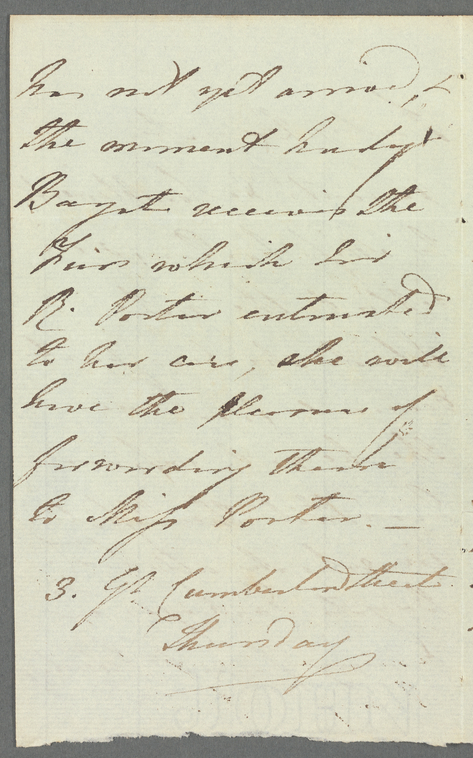 has not yet arrived, &
the moment Lady
Bagot receives the
Furs which Sir
R. Porter entrusted
to her care, she will
have the pleasure of
forwarding them
to Miss Porter. —
3. Gt. Cumberland Street
Thursday